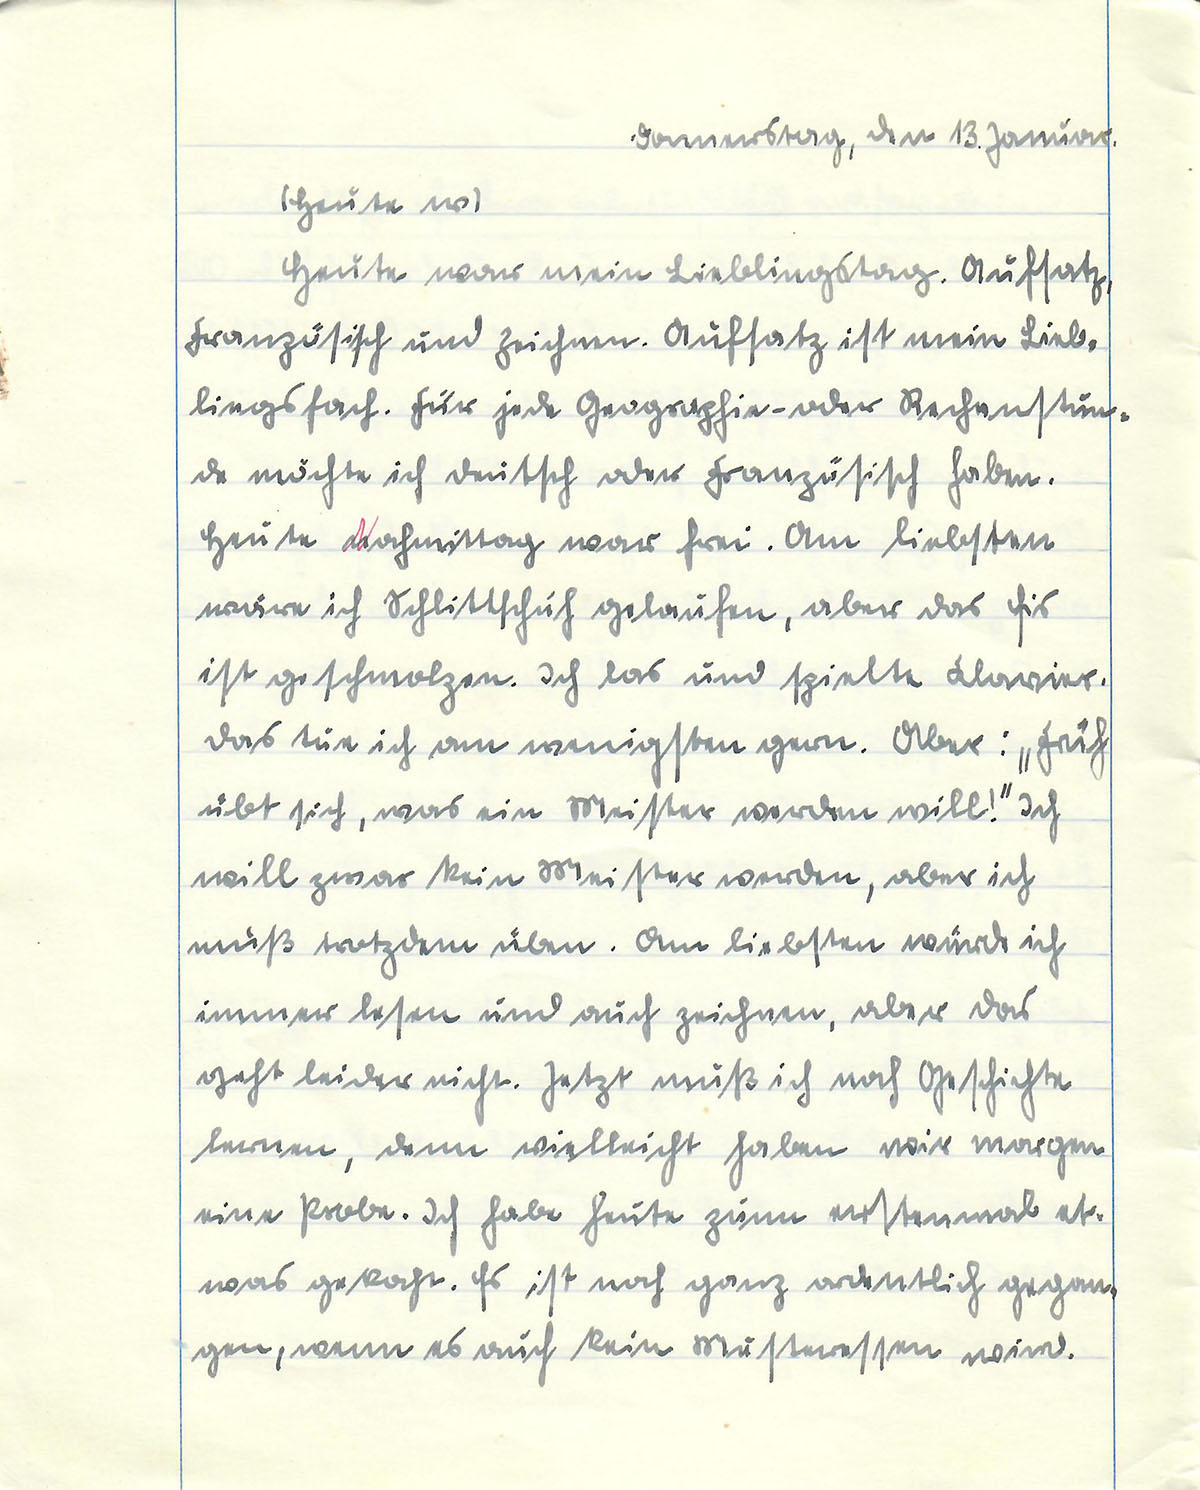 Donnerstag, den 13. Januar.
(Heute w)
Heute war mein Lieblingstag. Aufsatz,
Französisch und Zeichnen. Aufsatz ist mein Lieb-
lingsfach. Für jede Geographie- oder Rechenstun-
de möchte ich deutsch oder Französisch haben.
Heute Nachmittag war frei. Am liebsten
wäre ich Schlittschuh gelaufen, aber das Eis
ist geschmolzen. Ich las und spielte Klavier.
Das tue ich am wenigsten gern. Aber: „Früh
übt sich, was ein Meister werden will!" Ich
will zwar kein Meister werden, aber ich
muß trotzdem üben. Am liebsten würde ich
immer lesen und auch zeichnen, aber das
geht leider nicht. Jetzt muß ich noch Geschichte
lernen, denn vielleicht haben wir morgen
eine Probe. Ich habe heute zum erstenmal et-
was gekocht. Es ist noch ganz ordentlich gegan-
gen, wenn es auch kein Musteressen wird.